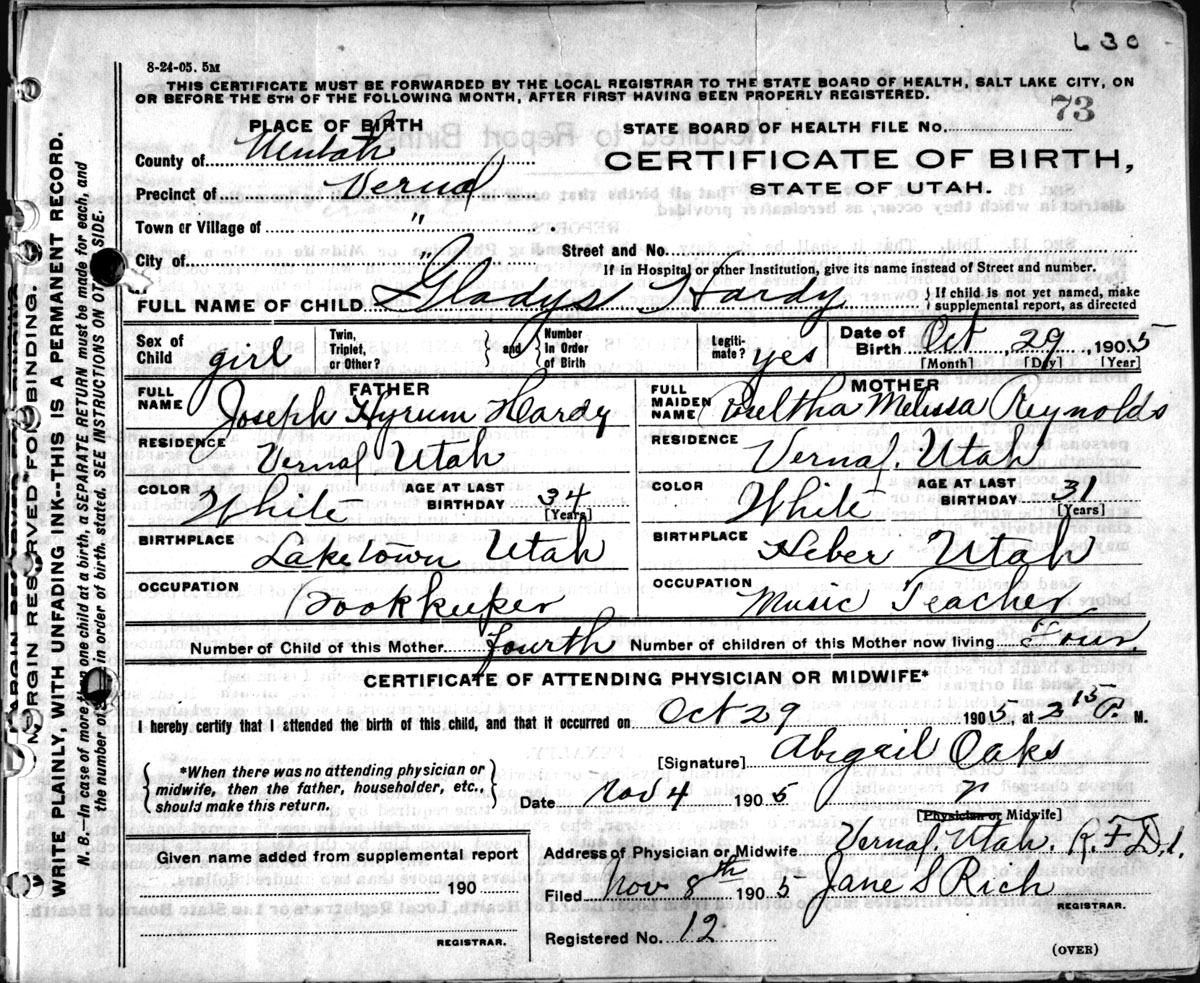 630
8-24-05. 5M
THIS CERTIFICATE MUST BE FORWARDED BY THE LOCAL REGISTRAR TO THE STATE BOARD OF HEALTH, SALT LAKE CITY, ON
OR BEFORE THE 5TH OF THE FOLLOWING MONTH, AFTER FIRST HAVING BEEN PROPERLY REGISTERED.
PLACE OF BIRTH
STATE BOARD OF HEALTH FILE No. 73
County of Uintah
CERTIFICATE OF BIRTH,
Precinct of Vernal
STATE OF UTAH.
Town or Village of "
City of " Street and No.
If in Hospital or other Institution, give its name instead of Street and number.
FULL NAME OF CHILD Gladys Hardy { If child is not yet named, make supplemental report, as directed
Sex of Child girl Twin, Triplet, or Other? } and { Number in Order of Birth Legiti-mate? yes Date of Birth Oct 29, 1905
[Month] [Day] [Year]
FATHER MOTHER
FULL NAME Joseph Hyrum Hardy FULL MAIDEN NAME Melissa Reynolds
RESIDENCE Vernal Utah RESIDENCE Vernal. Utah
COLOR White AGE AT LAST BIRTHDAY 34 [Years] COLOR White AGE AT LAST BIRTHDAY 31 [Years]
BIRTHPLACE Laketown Utah BIRTHPLACE Heber Utah
OCCUPATION Bookkeeper OCCUPATION Music Teacher
Number of Child of this Mother Fourth Number of children of this Mother now living Four.
CERTIFICATE OF ATTENDING PHYSICIAN OR MIDWIFE*
I hereby certify that I attended the birth of this child, and that it occurred on Oct 29 1905 at 2 15 P. M.
[Signature] Abigail Oaks
{ *When there was no attending physician or midwife, then the father, householder, etc., should make this return. }
Date Nov 4 1905
[Physician or Midwife]
Given name added from supplemental report
190
Address of Physician or Midwife Vernal. Utah. R.F.D.1.
Filed Nov 8th 1905 Jane S Rich
REGISTRAR.
REGISTRAR.
Registered No. 12
(OVER)
MARGIN RESERVED FOR BINDING.
WRITE PLAINLY, WITH UNFADING INK--THIS IS A PERMANENT RECORD.
N. B.--In case of more than one child at a birth, a SEPARATE RETURN must be made for each, and
the number of in order of birth, stated. SEE INSTRUCTIONS ON OTHER SIDE.